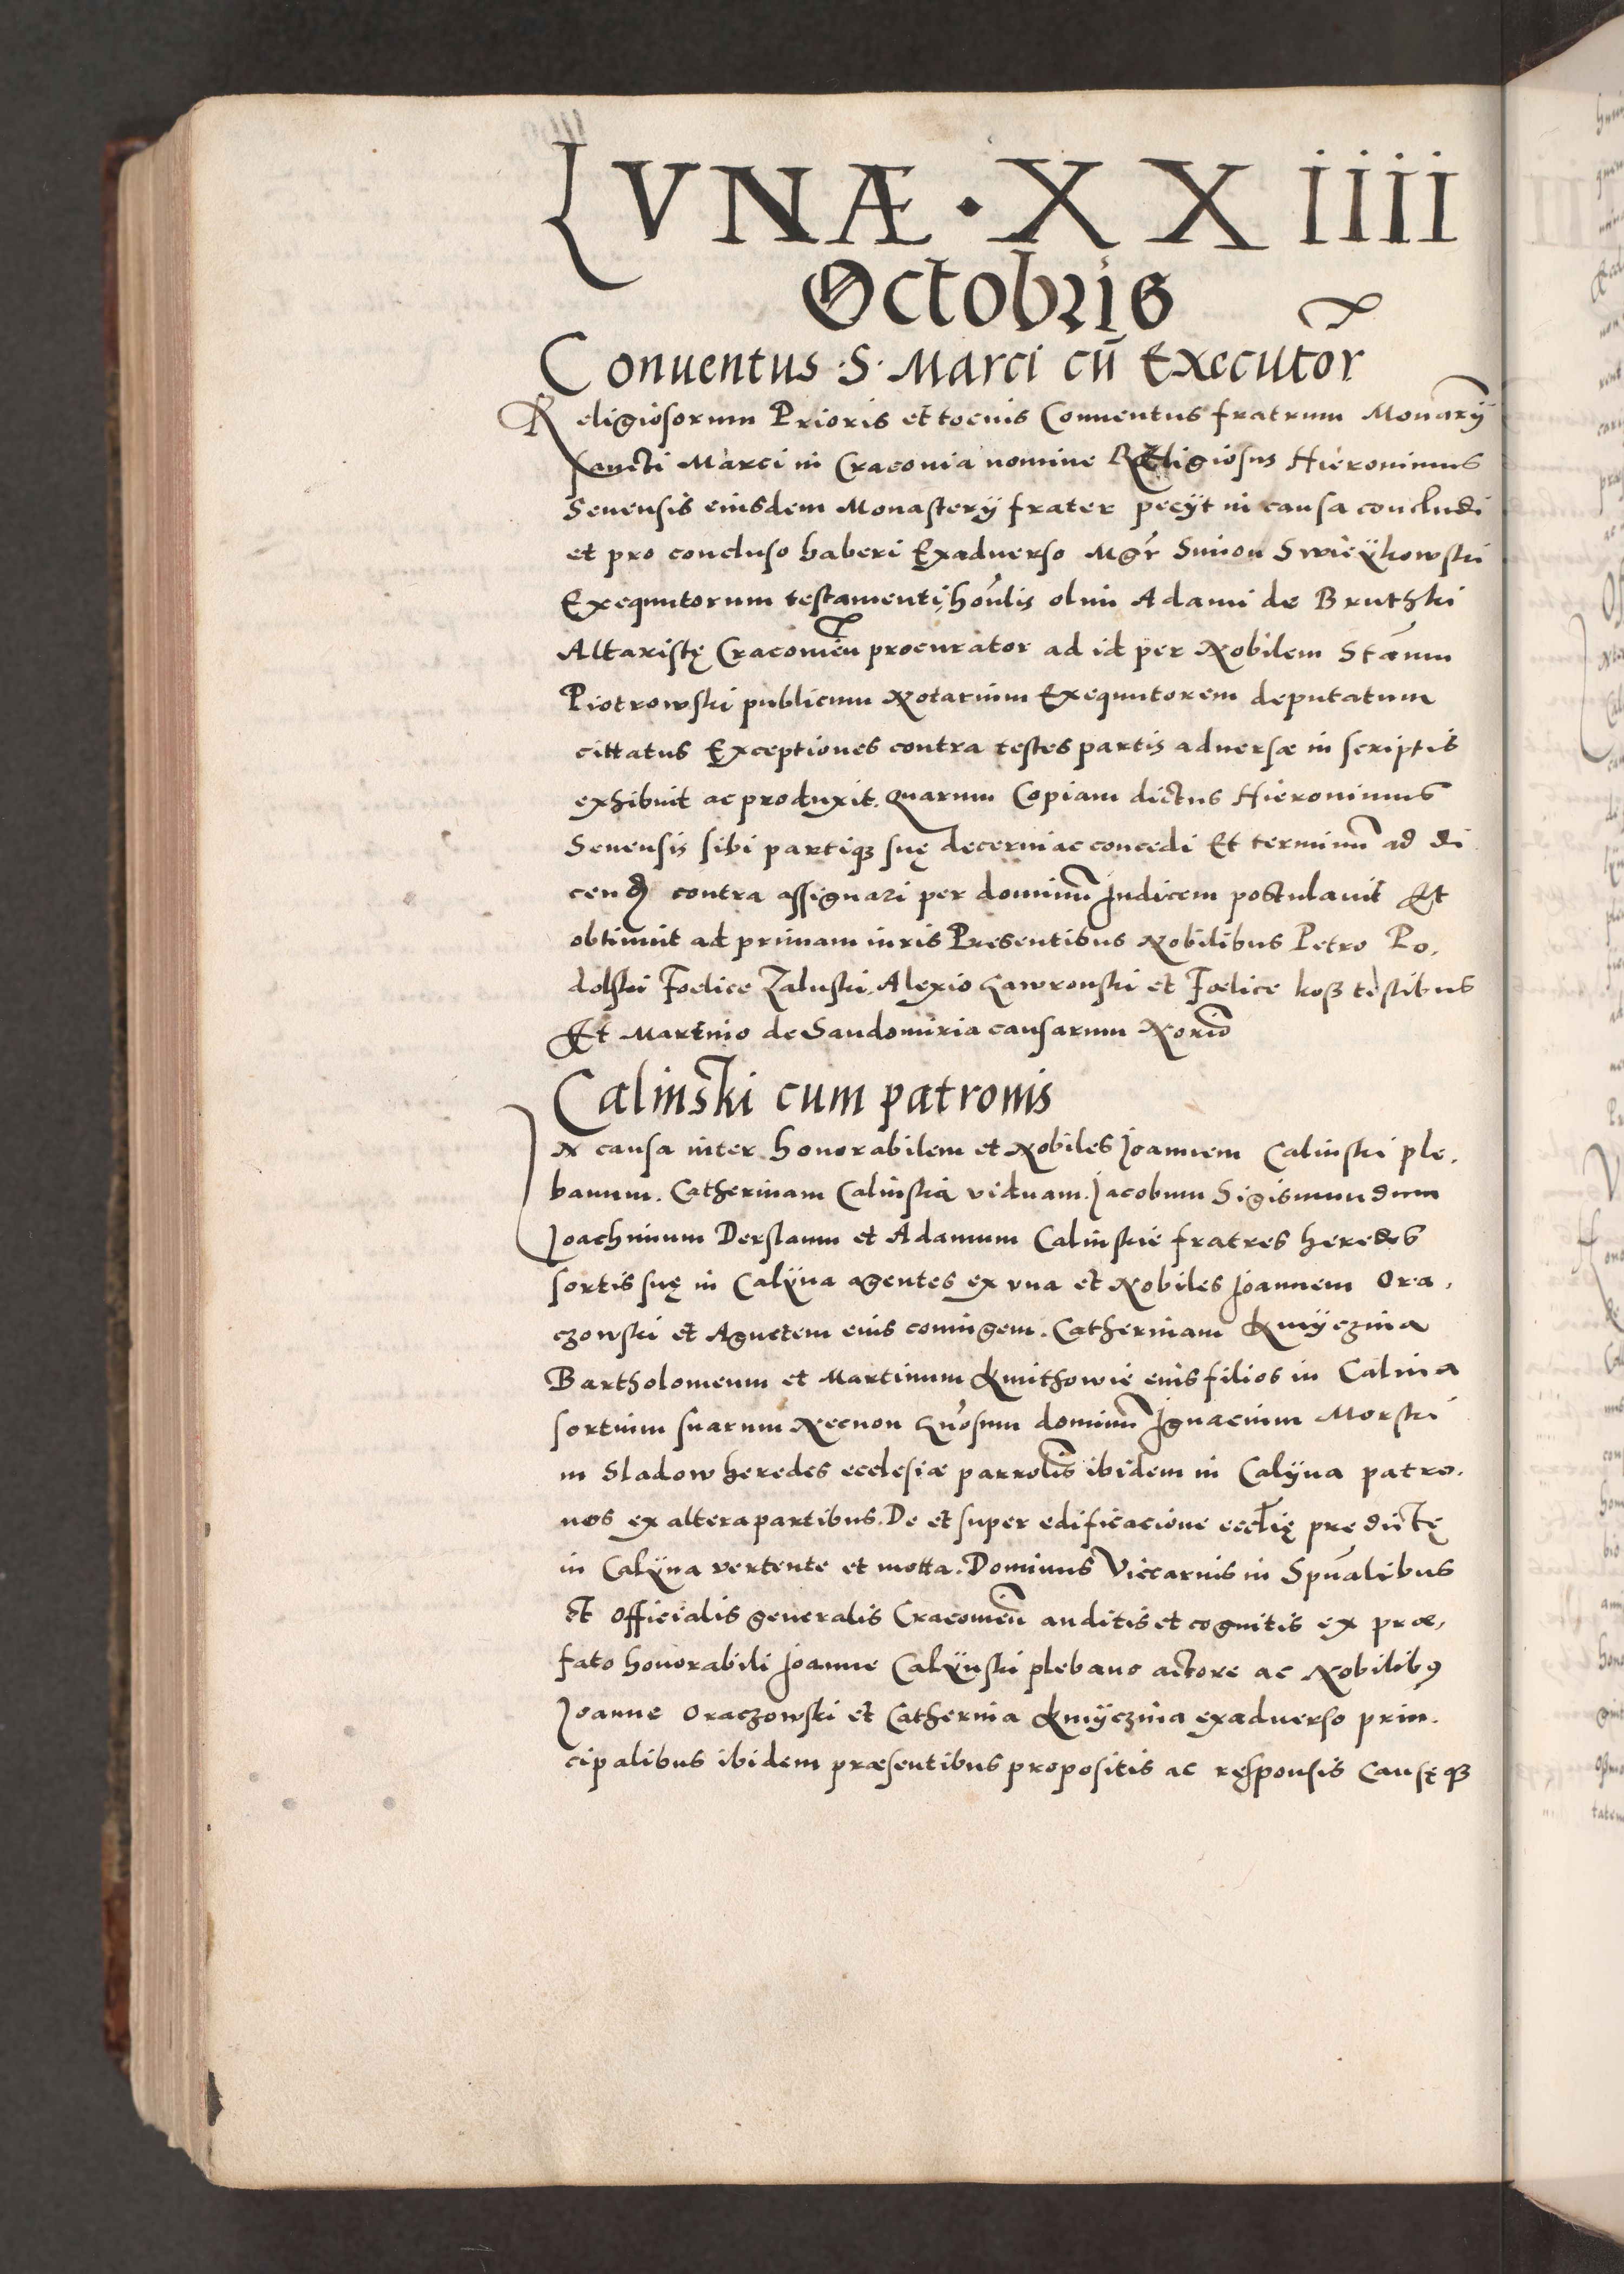 LVNÆ · XXiiii
Octobris
Conuentus ·S· Marci cũ Executor̃
Religiosorum Prioris et tocius Conuentus fratrum Monarÿ
sancti Marci in Craconia nomine Religiosus Hieronimus
Senensis eiusdem Monasterÿ frater pecÿt in causa concludi
et pro concluso haberi Exaduerso Mgr̃ Simon Swieÿkowski
Exequutorum testamenti hon̄lis olim Adami de Bruthski
Altaristę Cracouien̄ procurator ad id per Nobilem Stan̄um
Piotrowski publicum Notarium Exequutorem deputatum
cittatus Exceptiones contra testes partis aduersæ in scriptis
exhibuit ac produxit. Quarum Copiam dictus Hieronimus
Senensis sibi partiqꝫ suę decerni ac concedi Et terminū ad di
cendꝭ contra assignari per dominū Judicem postulauit Et
obtinuit ad primam iuris Presentibus Nobilibus Petro Po.
dolski Foelice Zaluski Alexio Lawronski et Foelice koß testibus
Et Martino de Sandomiria causarum Norio
Calinski cum patronis
In causa inter honorabilem et Nobiles Joannem Calinski ple.
banum. Catherinam Calinska viduam. Jacobum Sigismundum
Joachimum Derslaum et Adamum Calinskie fratres heredes
sortis suę in Calÿna agentes ex vna et Nobiles Joannem Ora.
czowski et Agnetem eius coniugem. Catherinam Kmÿczina
Bartholomeum et Martinum Kmithowie eius filios in Calina
sortium suarum Necnon Gn̄osum dominū Ignacium Morski
in Sladow heredes ecclesiæ parrolis̄ ibidem in Calÿna patro.
nos ex altera partibus. De et super edificacione eccłię predictę
in Calÿna vertente et motta. Dominus Viccarius in Spūalibus
et officialis generalis Cracouien̄ auditis et cognitis ex præ,
fato honorabili Joanne Calÿnski plebano actore ac Nobilibꝰ
Joanne Oraczowski et Catherina Kmÿczina exaduerso prin.
cipalibus ibidem præsentibus propositis ac responsis Causęqꝫ